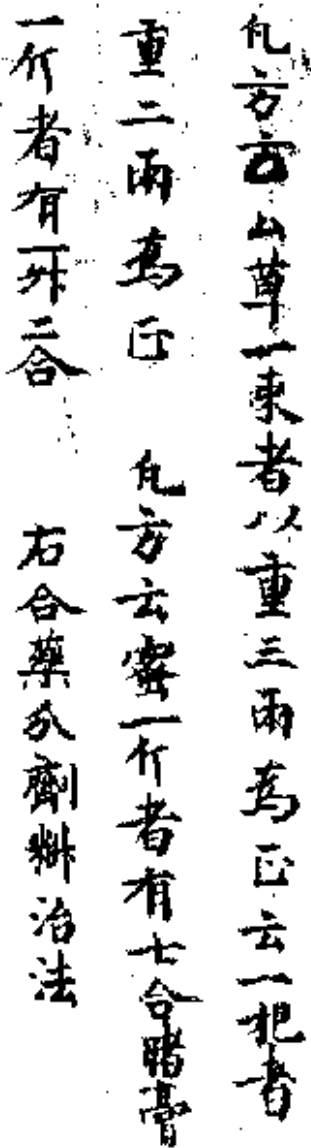 凡方云山草一束者以重三兩為正云一把者
重二兩為正　凡方云蜜一斤者有七合豬膏
一斤者有一升二合　右合藥分劑料治法